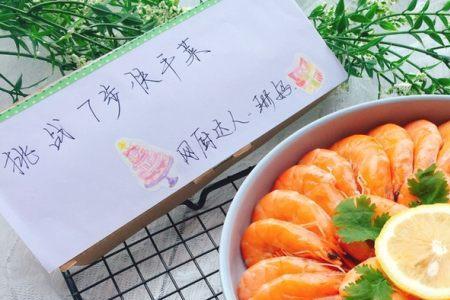 挑战7步快手菜
网厨达人·珊妈